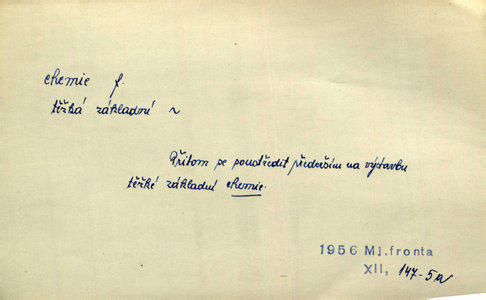 chemie f.
těžká základní ~
Přitom se soustředit především na výstavbu
těžké základní chemie.
1956 Ml.fronta
XII, 147-5a